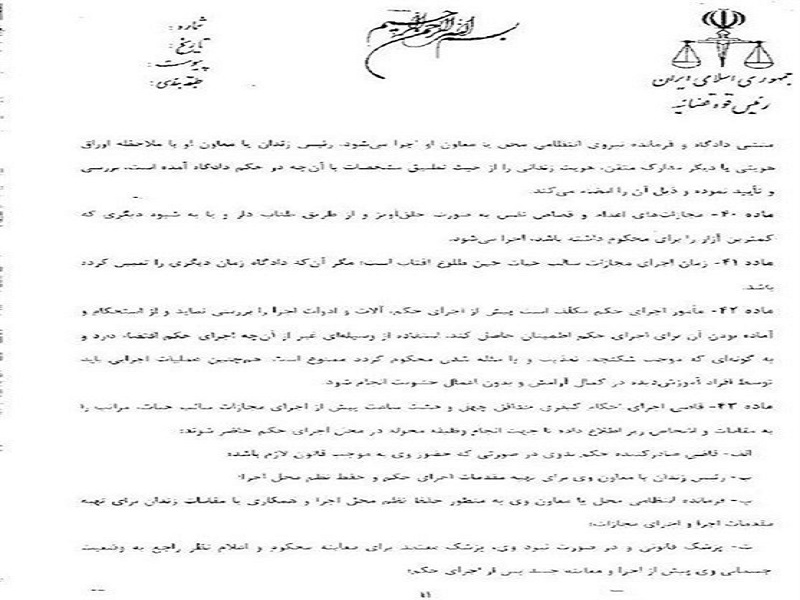 بسم الله الرحمن الرحیم
شماره :
تاریخ :
پیوست :
طبقه‌بندی :
جمهوری اسلامی ایران
رئیس قوه قضائیه
منشی دادگاه و فرمانده نیروی انتظامی محل یا معاون او اجرا می‌شود. رئیس زندان یا معاون او با ملاحظه اوراق
هویتی یا دیگر مدارک متقن، هویت زندانی را از حیث تطبیق مشخصات با آن‌چه در حکم دادگاه آمده است، بررسی
و تأیید نموده و ذیل آن را امضاء می‌کند.
ماده ۴۰- مجازات‌های اعدام و قصاص نفس به صورت حلق‌آویز و از طریق طناب دار و یا به شیوه دیگری که
کمترین آزار را برای محکوم داشته باشد، اجرا می‌شود.
ماده ۴۱- زمان اجرای مجازات سالب حیات حین طلوع آفتاب است؛ مگر آن‌که دادگاه زمان دیگری را تعیین کرده
باشد.
ماده ۴۲- مأمور اجرای حکم مکلف است پیش از اجرای حکم، آلات و ادوات اجرا را بررسی نماید و از استحکام و
آماده بودن آن برای اجرای حکم اطمینان حاصل کند. استفاده از وسیله‌ای غیر از آن‌چه اجرای حکم اقتضاء دارد و
به گونه‌ای که موجب شکنجه، تعذیب و یا مثله شدن محکوم گردد ممنوع است. هم‌چنین عملیات اجرایی باید
توسط افراد آموزش‌دیده در کمال آرامش و بدون اعمال خشونت انجام شود.
ماده ۴۳- قاضی اجرای احکام کیفری حداقل چهل و هشت ساعت پیش از اجرای مجازات سالب حیات، مراتب را
به مقامات و اشخاص زیر اطلاع داده تا جهت انجام وظیفه محوله در محل اجرای حکم حاضر شوند:
الف- قاضی صادرکننده حکم بدوی در صورتی که حضور وی به موجب قانون لازم باشد؛
ب- رئیس زندان یا معاون وی برای تهیه مقدمات اجرای حکم و حفظ نظم محل اجرا؛
پ- فرمانده انتظامی محل یا معاون وی به منظور حفظ نظم محل اجرا و همکاری با مقامات زندان برای تهیه
مقدمات اجرا و اجرای مجازات؛
ت- پزشک قانونی و در صورت نبود وی، پزشک معتمد برای معاینه محکوم و اعلام نظر راجع به وضعیت
جسمانی وی پیش از اجرا و معاینه جسد پس از اجرای حکم؛
۱۱